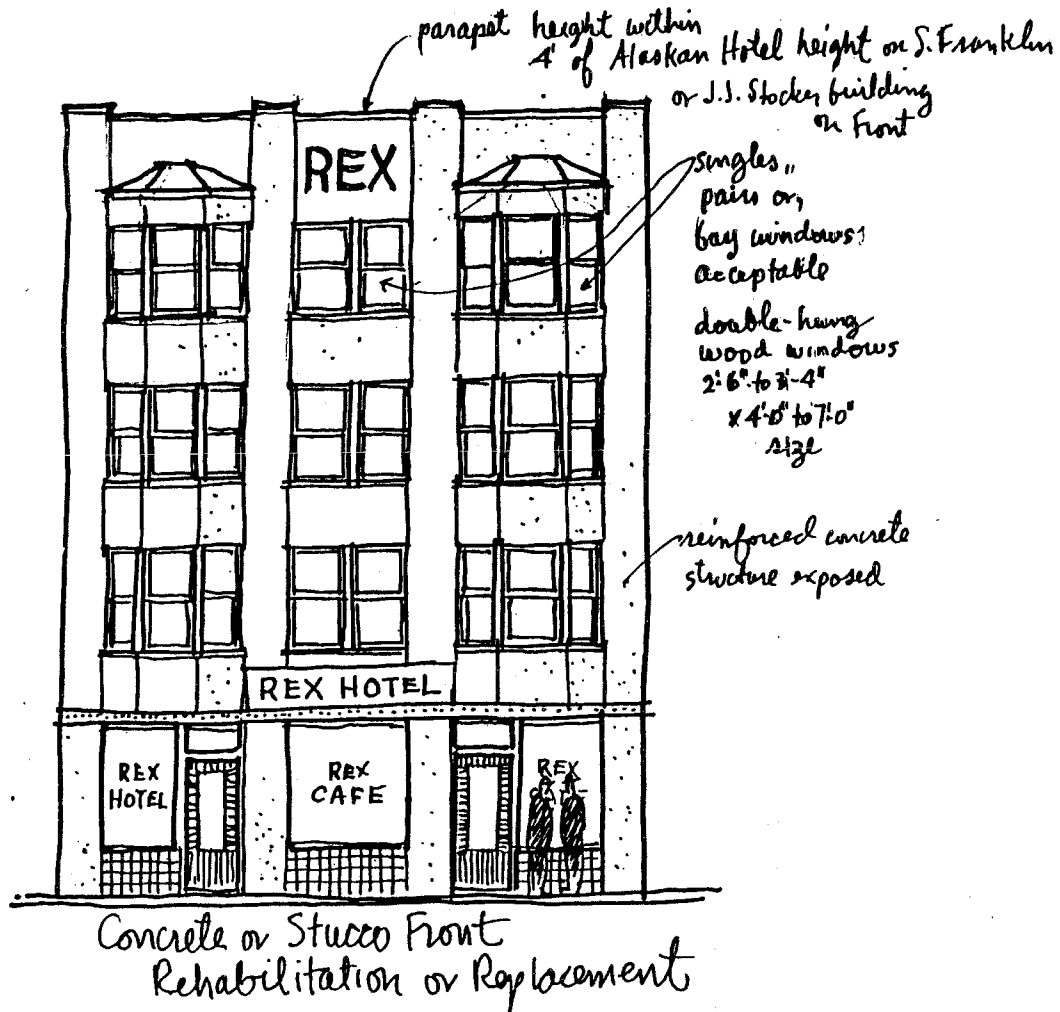 parapet height within
4' of Alaskan Hotel height on S. Franklin
or J.J. Stocker building
on Front
REX
singles,,
pairs or,
bay windows,
acceptable
double-hung
wood windows
2'-6" to 3'-4"
x 4'-0" to 7'-0"
size
reinforced concrete
structure exposed
REX HOTEL
REX
HOTEL
REX
CAFE
REX
Concrete or Stucco Front
Rehabilitation or Replacement